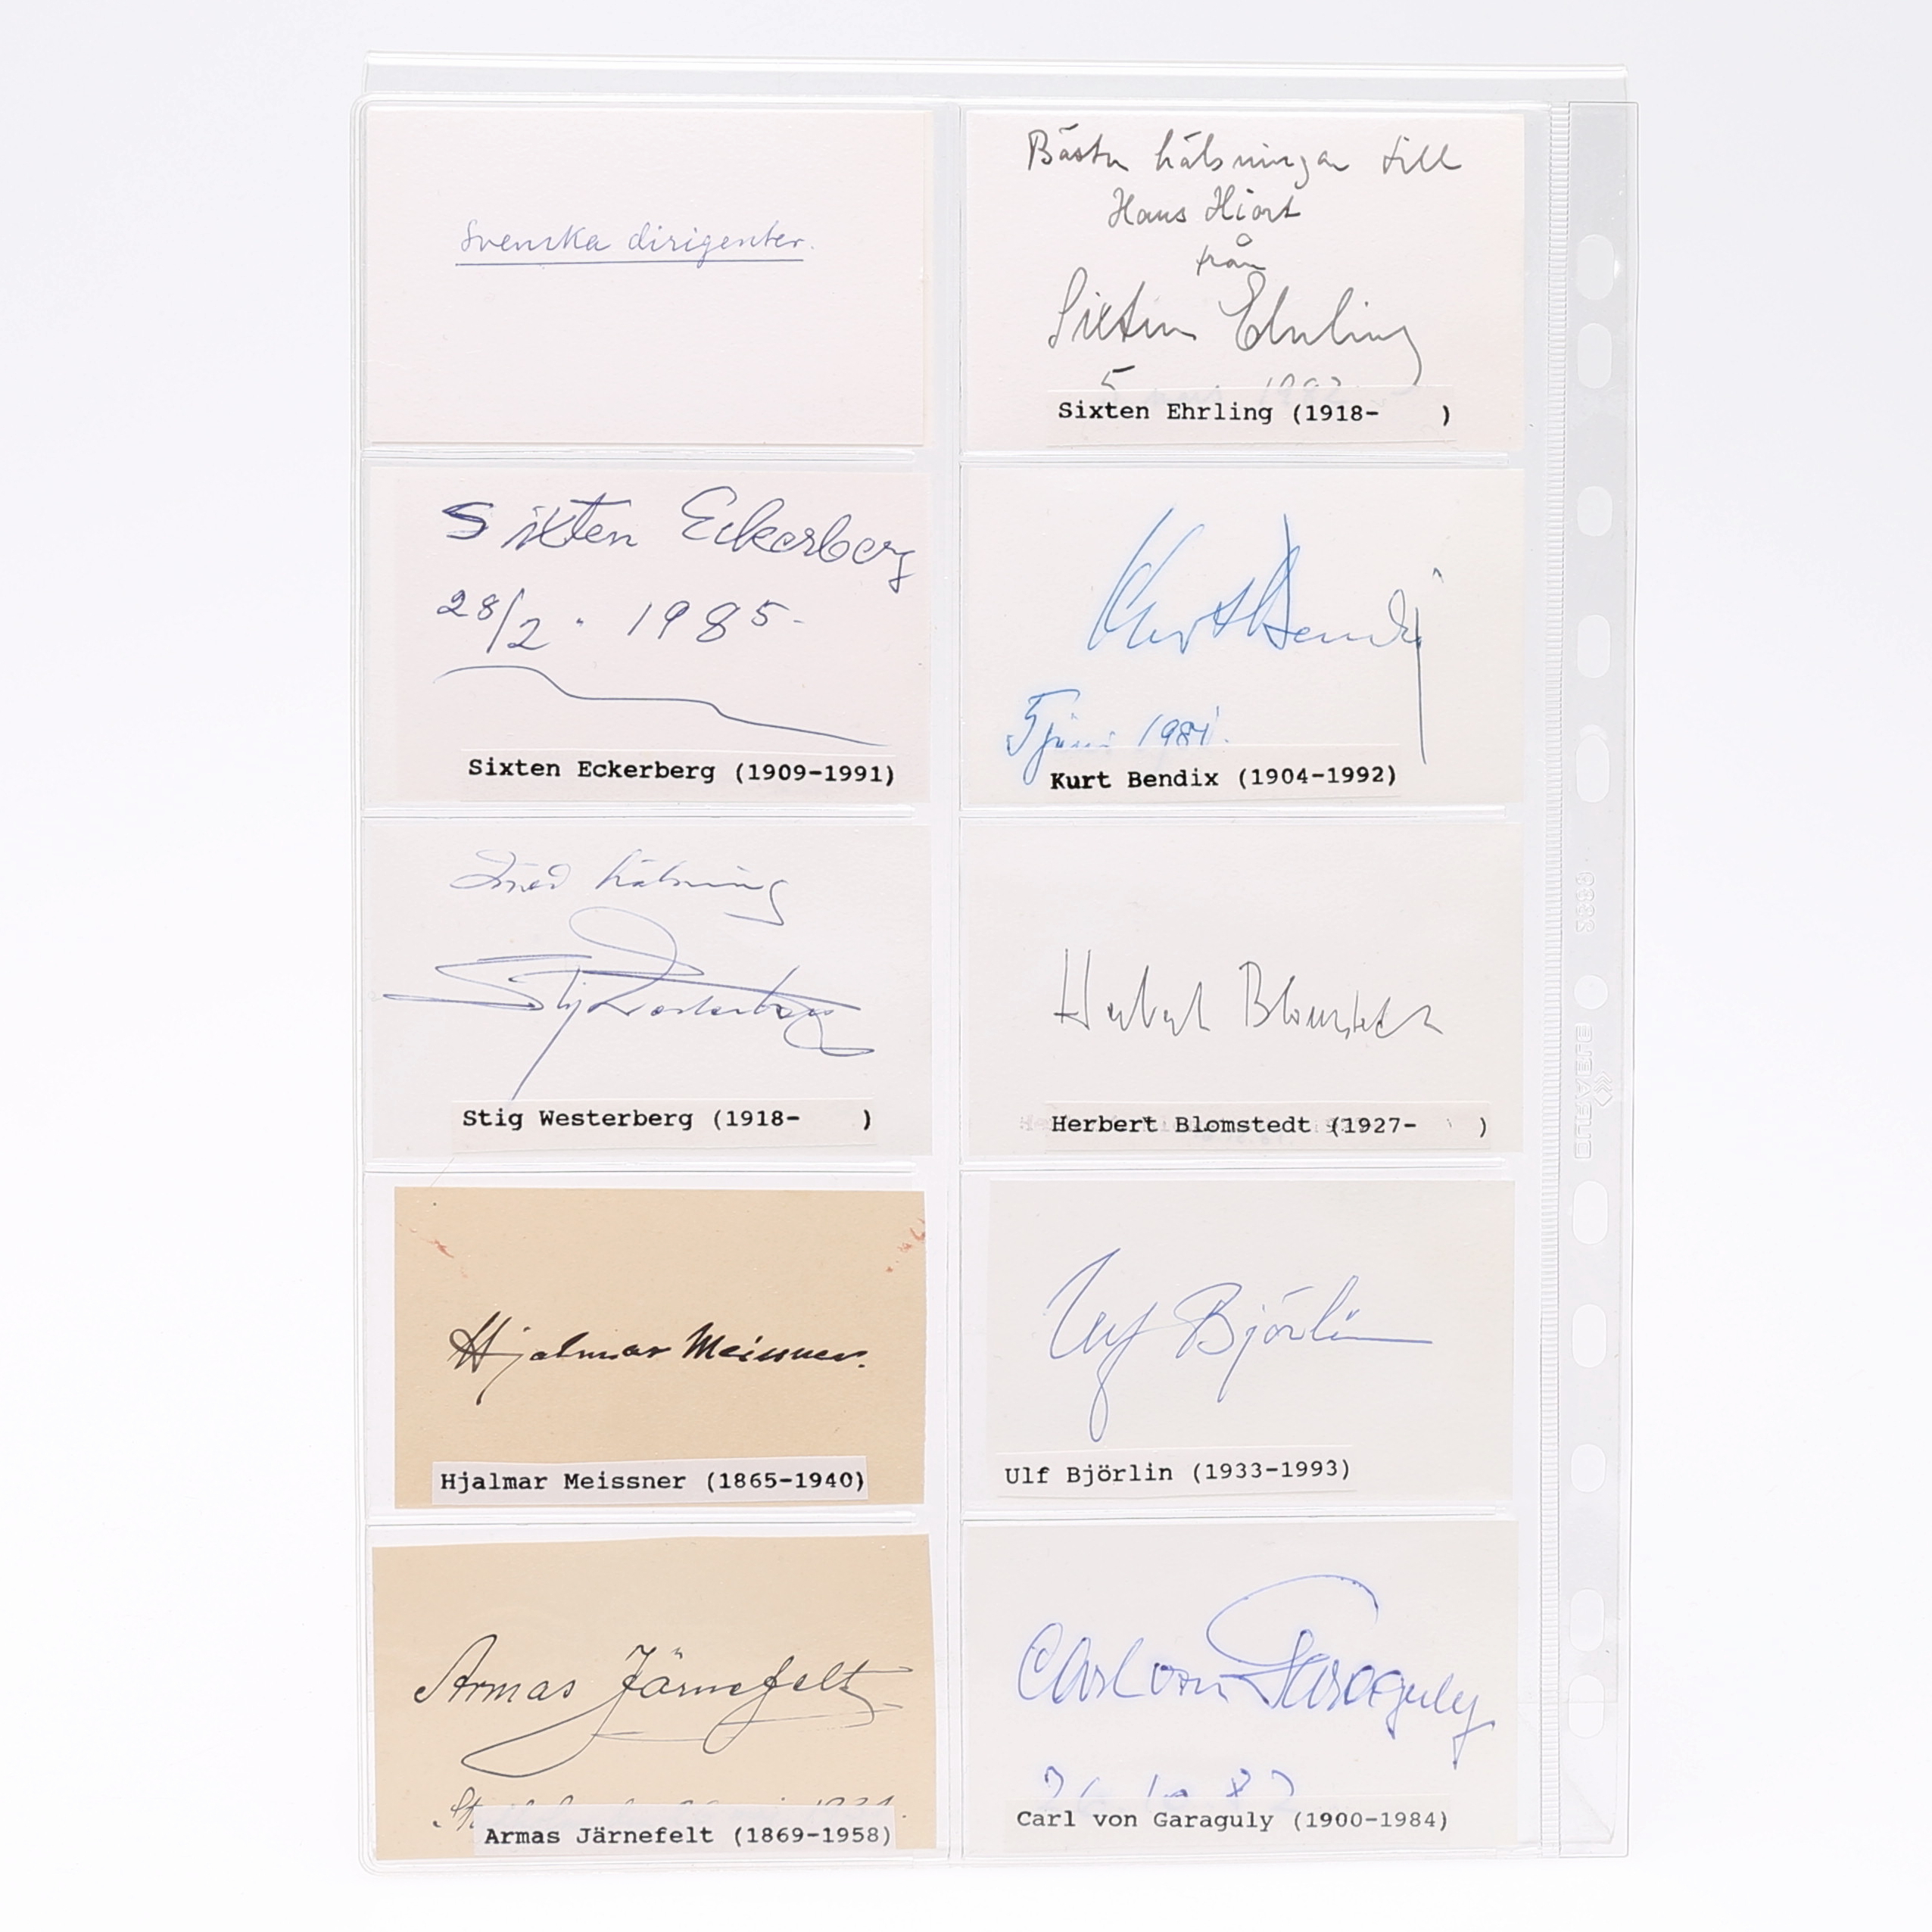 Svenska dirigenter.
Bästa hälsningar till
Hans Hiort
från
Sixten Ehrling
5 1982
Sixten Ehrling (1918- )
Sixten Eckerberg
28/2 · 1985-
Sixten Eckerberg (1909-1991)
Kurt Bendix
5 juni 1981.
Kurt Bendix (1904-1992)
med hälsning
Stig Westerberg
Stig Westerberg (1918- )
Herbert Blomstedt
Herbert Blomstedt (1927- )
Hjalmar Meissner.
Hjalmar Meissner (1865-1940)
Ulf Björlin
Ulf Björlin (1933-1993)
Armas Järnefelt
Armas Järnefelt (1869-1958)
Carl von Garaguly
Carl von Garaguly (1900-1984)